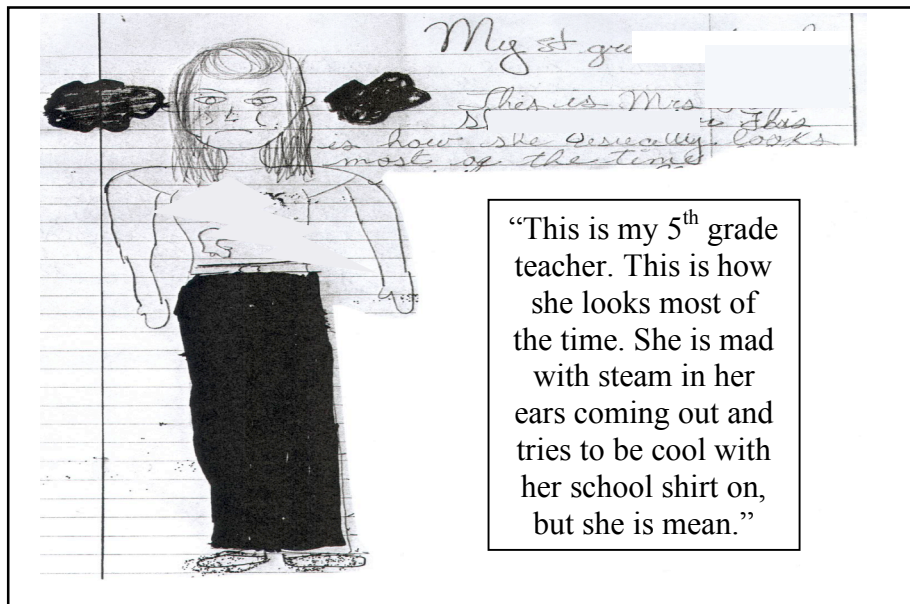 My st gra
This is Mrs
This
is how she usually looks
most of the time
“This is my 5th grade
teacher. This is how
she looks most of
the time. She is mad
with steam in her
ears coming out and
tries to be cool with
her school shirt on,
but she is mean.”